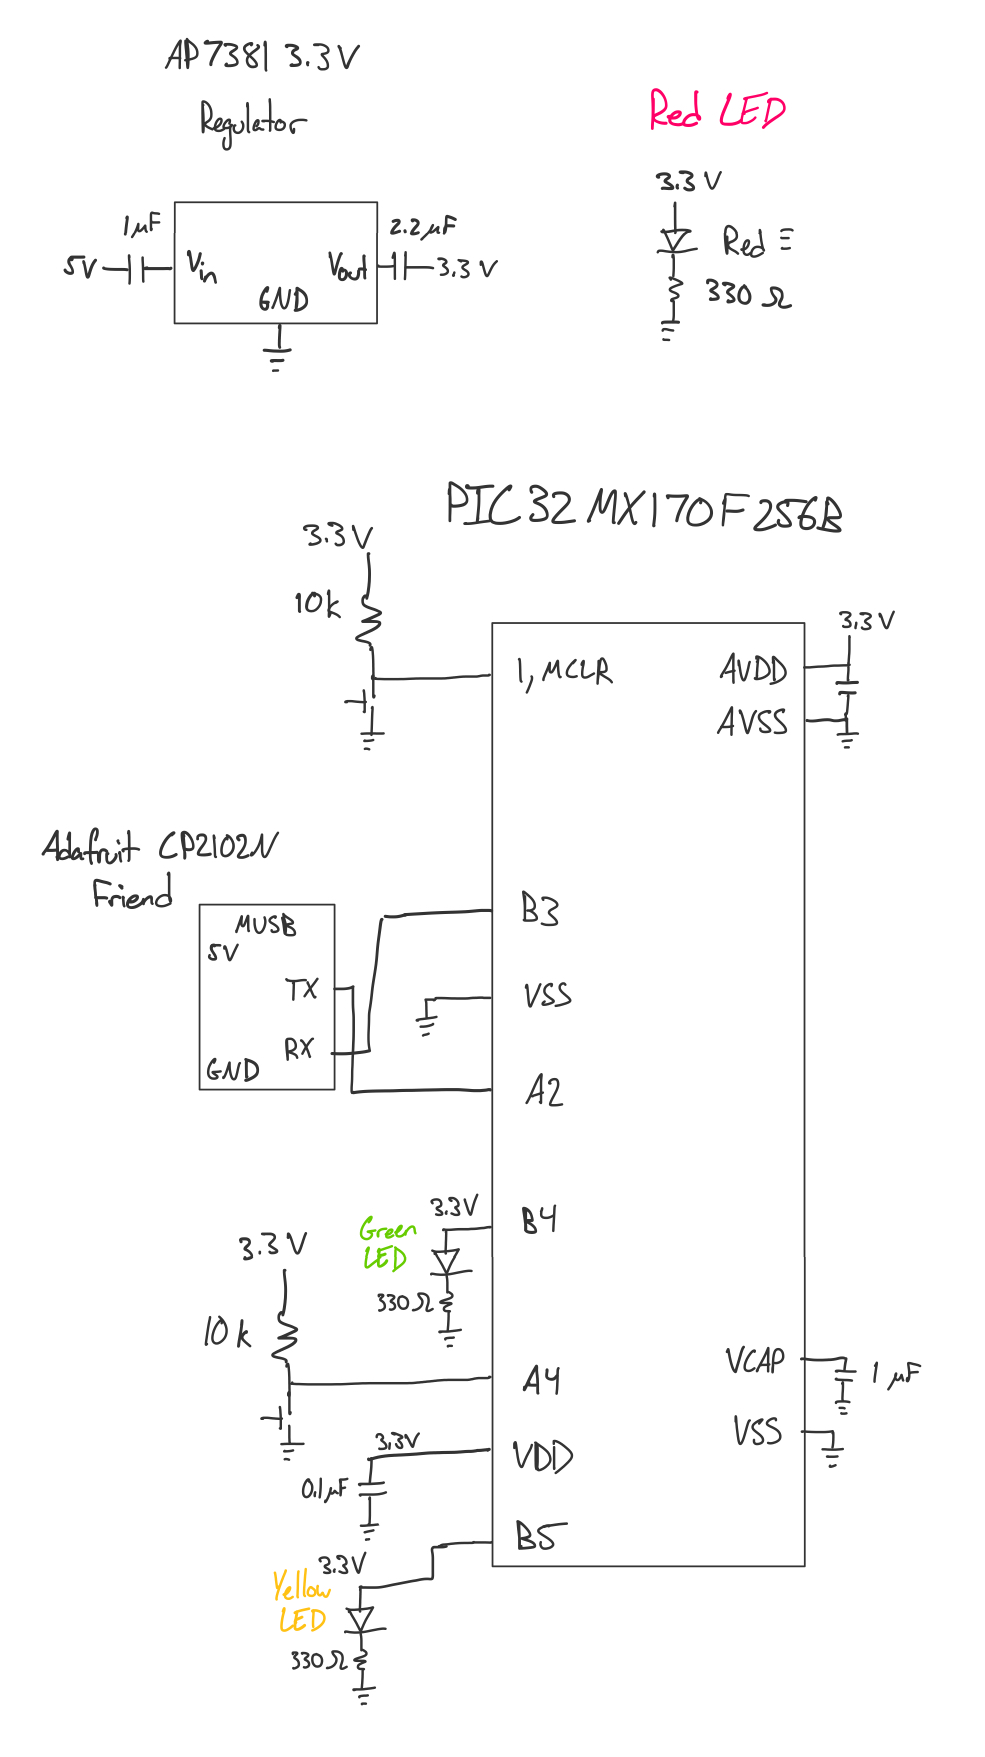 AP7381 3.3V
Regulator
1μF
5V
Vin
GND
Vout
2.2μF
3.3V
Red LED
3.3V
Red
330Ω
PIC32MX170F256B
3.3V
10k
1, MCLR
AVDD
3.3V
AVSS
Adafruit CP2102N
Friend
MUSB
5V
TX
RX
GND
B3
VSS
A2
3.3V
B4
Green
LED
330Ω
3.3V
10k
A4
3.3V
VDD
0.1μF
B5
3.3V
Yellow
LED
330Ω
VCAP
1μF
VSS